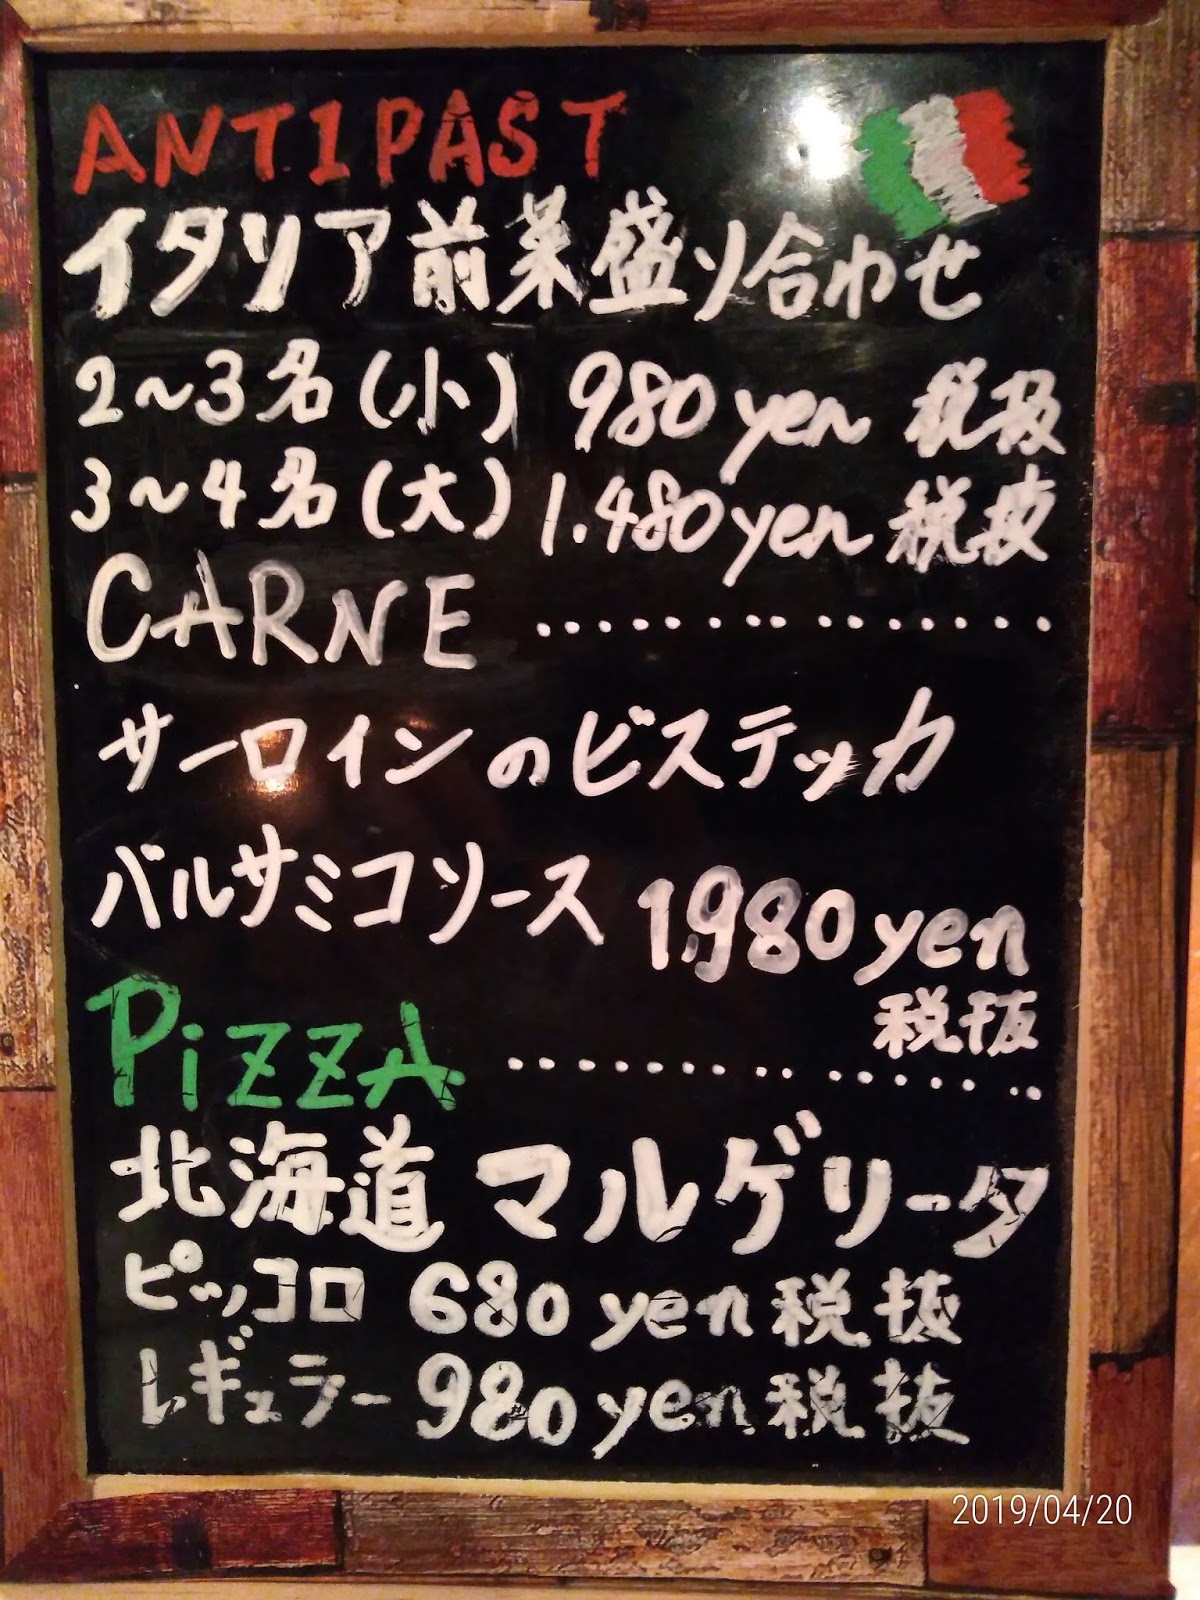 ANTIPAST
イタリア前菜盛り合わせ
2～3名(小) 980yen 税抜
3～4名(大) 1.480yen 税抜
CARNE ......................
サーロインのビステッカ
バルサミコソース 1,980yen
税抜
PiZZA ......................
北海道 マルゲリータ
ピッコロ 680yen 税抜
レギュラー 980yen 税抜
2019/04/20